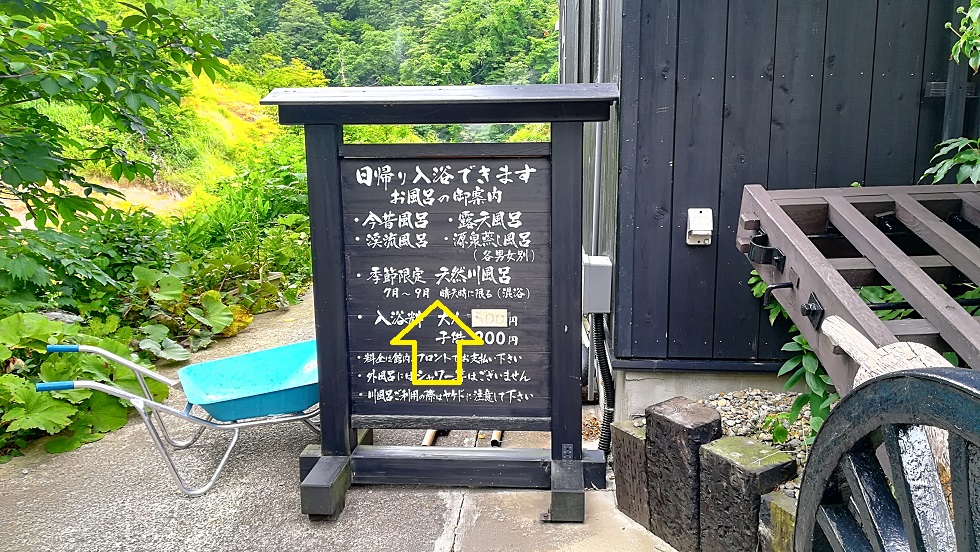 日帰り入浴できます
お風呂の御案内
・今昔風呂 ・露天風呂
・渓流風呂 ・源泉蒸し風呂
(各男女別)
・季節限定 天然川風呂
7月〜9月 晴天時に限る(混浴)
・入浴料 大人 円
子供 300円
・料金は館内フロントでお支払い下さい
・外風呂にはシャワー等はございません
・川風呂ご利用の際はヤケドに注意して下さい